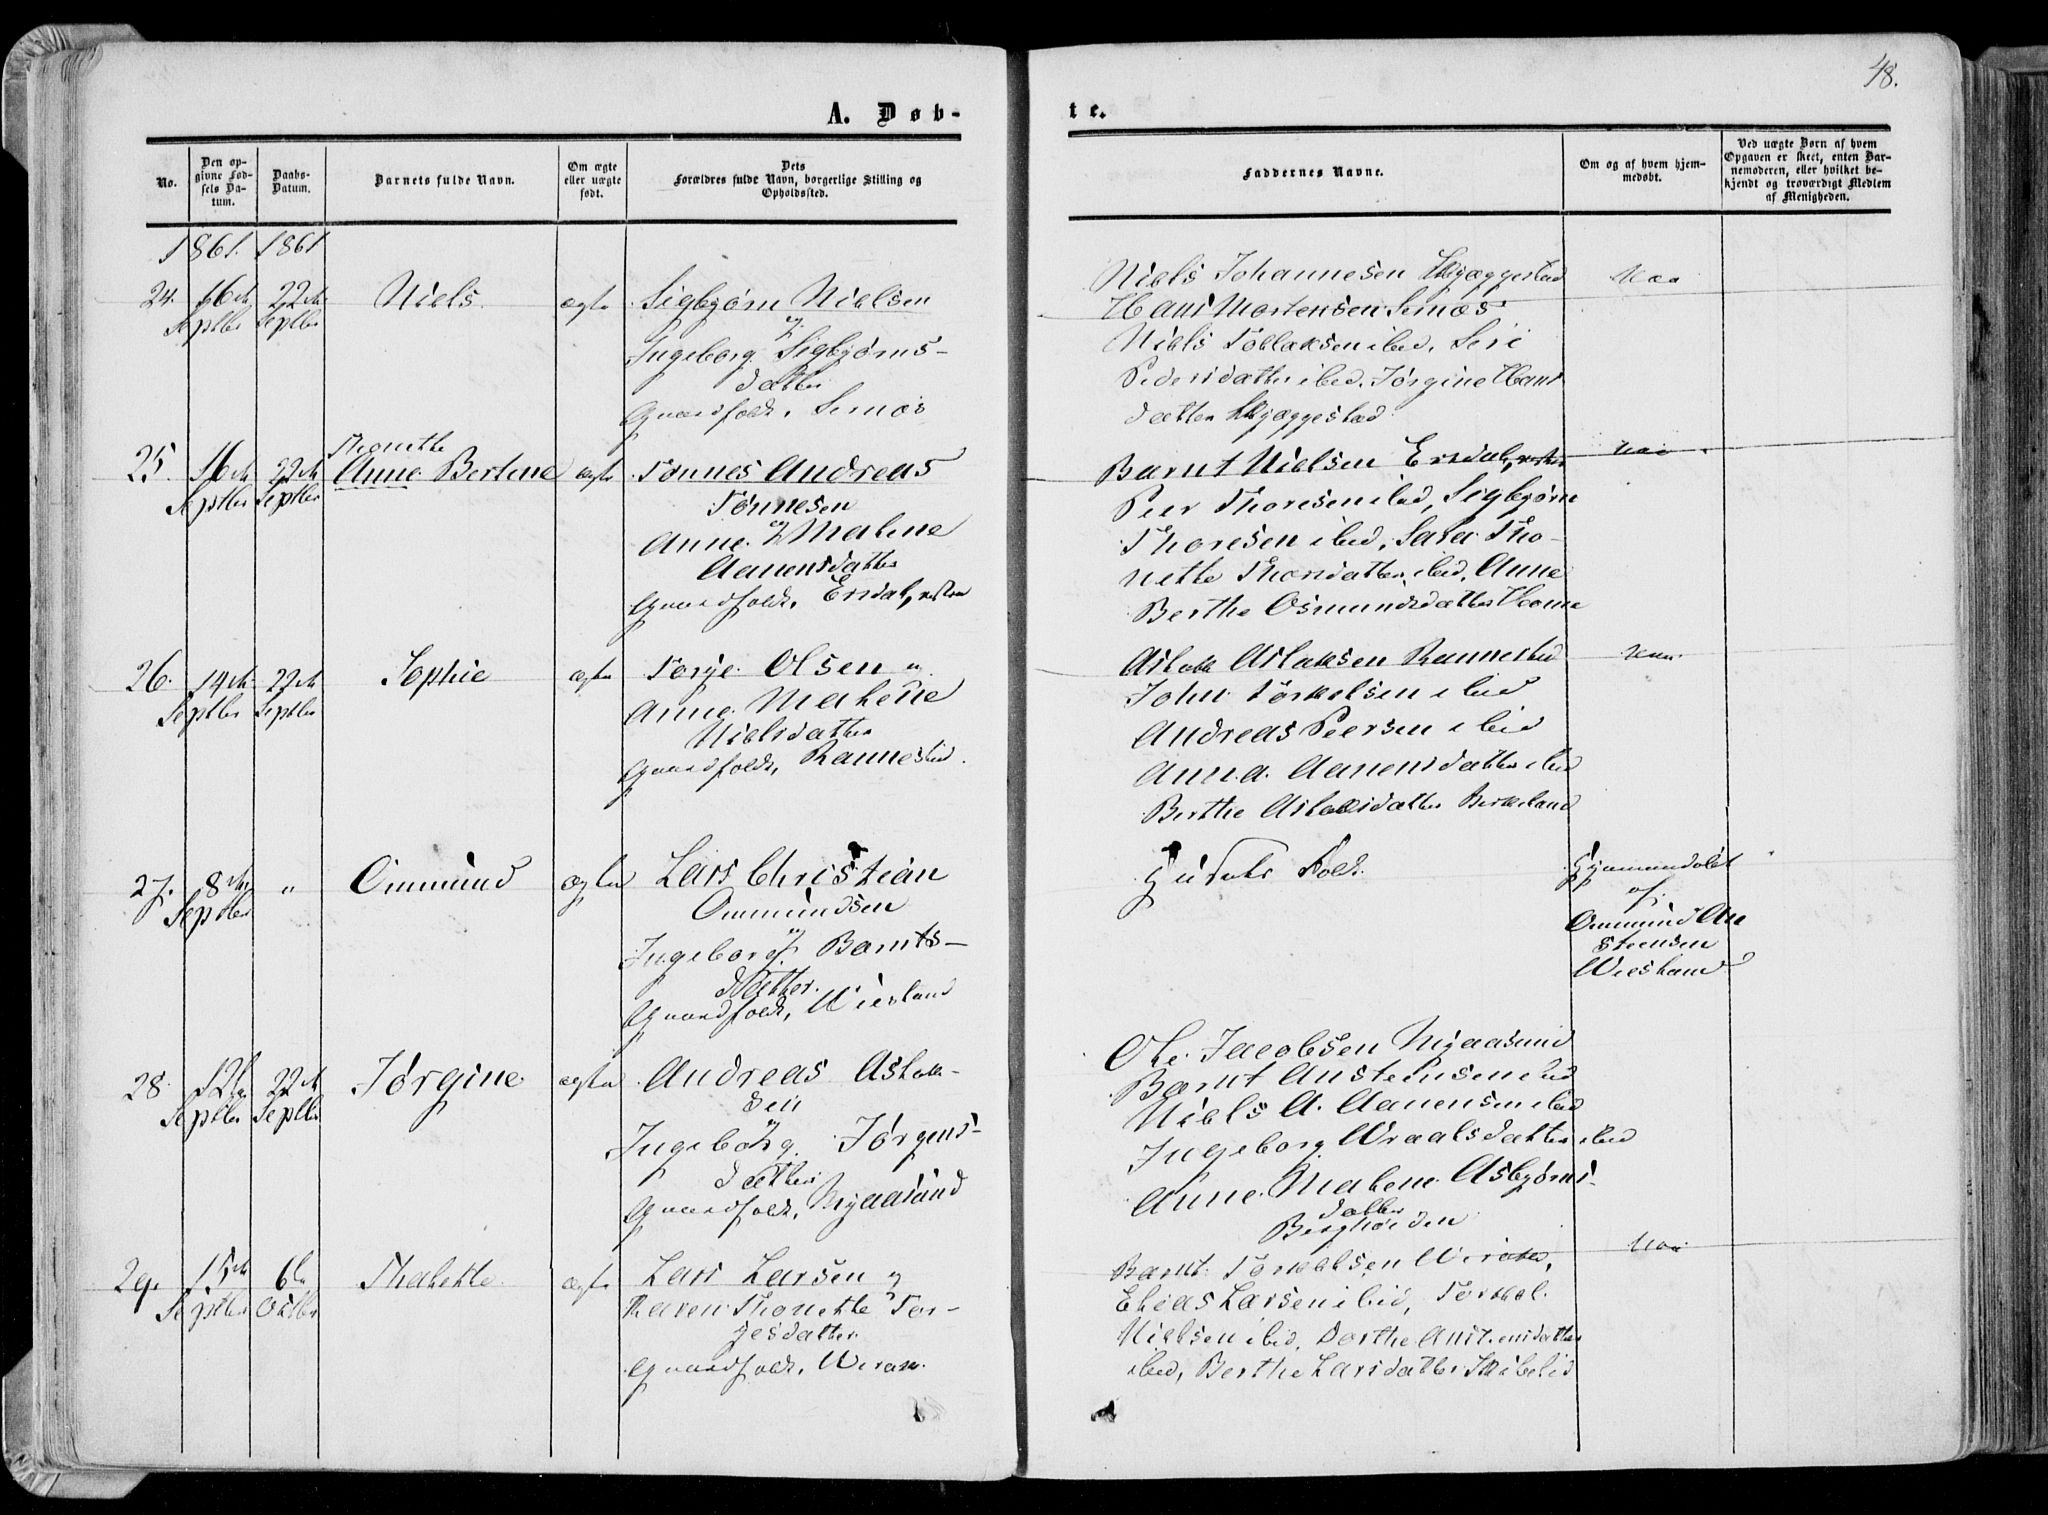 48.
A. Døb-
te.
No.
Den op-
givne Fød-
sels Da-
tum.
Daabs-
Datum.
Barnets fulde Navn.
Om ægte
eller uægte
født.
Dets
Forældres fulde Navn, borgerlige Stilling og
Opholdssted.
Faddernes Navne.
Om og af hvem hjem-
medøbt.
Ved uægte Børn af hvem
Opgaven er skeet, enten Bar-
nemoderen, eller hvilket be-
kjendt og troværdigt Medlem
af Menigheden.
1861. 1861
24.
16de
Septbr
22de
Septbr
Niels
ægte
Sigbjørn Nielsen
og
Ingeborg Sigbjørns-
datter
Gaardfolk, Sirnæs
Niels Johannesen Skjæggestad
Hans Mortensen Sirnæs
Niels Tollaksen ibid, Siri
Pedersdatter ibid, Jørgine Hans
datter Skjæggestad
Nei
25.
16de
Septbr
22de
Septbr
Thonette
Anne Bertine
ægte
Tønnes Andreas
Tønnesen
og
Anne Malene
Aanensdatter
Gaardfolk, Ersdal, vestre
Barnt Nielsen Ersdal, vestre
Peer Thoresen ibid, Sigbjørn
Thoresen ibid, Sara Tho-
nette Thorsdatter ibid, Anne
Berthe Osmundsdatter
Nei
26.
14de
Septbr
22de
Septbr
Sophie
ægte
Torje Olsen og
Anne Malene
Nielsdatter
Gaardfolk, Rannestad.
Aslak Aslaksen Rannestad
John Tørkelsen ibid
Andreas Peersen ibid
Anna Aanensdatter ibid
Berthe Aslaksdatter Birkeland
Nei
27.
8de
Septbr
"
Ommund
ægte
Lars Christian
Ommundsen
og
Ingeborg Barnts-
datter
Gaardfolk, Wiesland
Gudeles Folk.
Hjemmedøbt
af
Ommund Au
steensen
Wiesland
28
12te
Septbr
22de
Septbr
Jørgine
ægte
Andreas Aslak-
sen
og
Ingeborg Jørgens-
datter
Gaardfolk, Mygaasund
Ole Jacobsen Mygaasund
Barnt Austensen ibid
Niels A. Aanensen ibid
Ingeborg Wraalsdatter ibid
Anne Malene Asbjørns-
datter
29.
15de
Septbr
6te
Octbr
Thalette
ægte
Lars Larsen og
Karen Thonette Tor-
jesdatter
Gaardfolk, Wirak.
Barnt Tørkelsen Wirak,
Elias Larsen ibid, Tørkel
Nielsen ibid, Dorthe Austensdatter
ibid, Berthe Larsdatter Skibelid
Nei